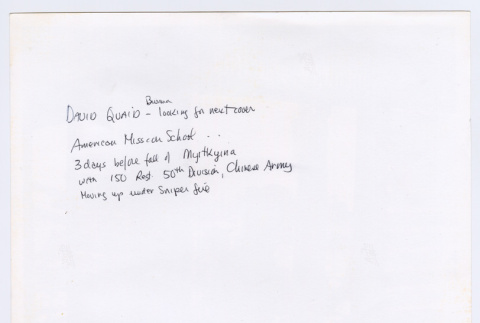 Burma
DAVID QUAID - looking for next cover
American Mission School . .
3 days before fall of Myitkyina
with 150 Regt. 50th Division, Chinese Army
Moving up under Sniper fire